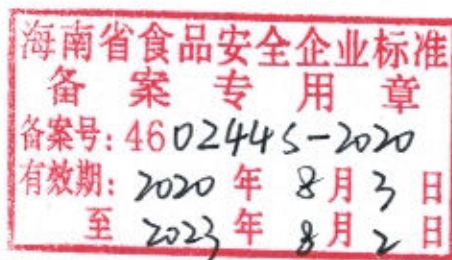 海南省食品安全企业标准
备案专用章
备案号: 4602445-2020
有效期: 2020 年 8 月 3 日
至 2023 年 8 月 2 日